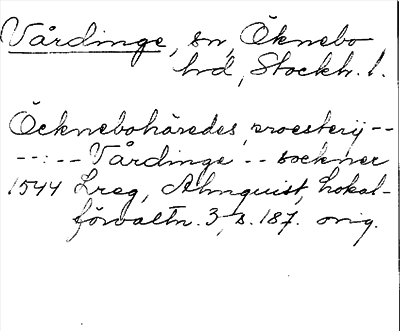 Vårdinge, sn, Öknebo
hd, Stockh. l.
Öcknebohäredes proesterij --
--:-- Vårdinge -- sockner
1544 Lreg, Almquist, Lokal-
förvaltn. 3, s. 187. orig.